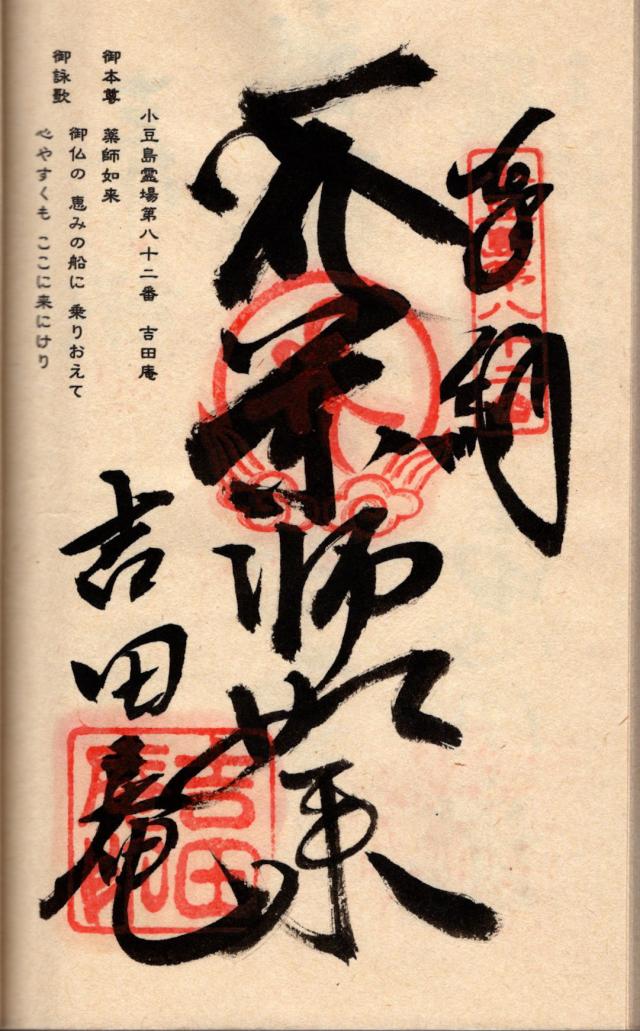 奉納
薬師如来
小豆島霊場第八十二番 吉田庵
御本尊 薬師如来
御詠歌 御仏の 恵みの船に 乗りおえて
心やすくも ここに来にけり
吉田庵